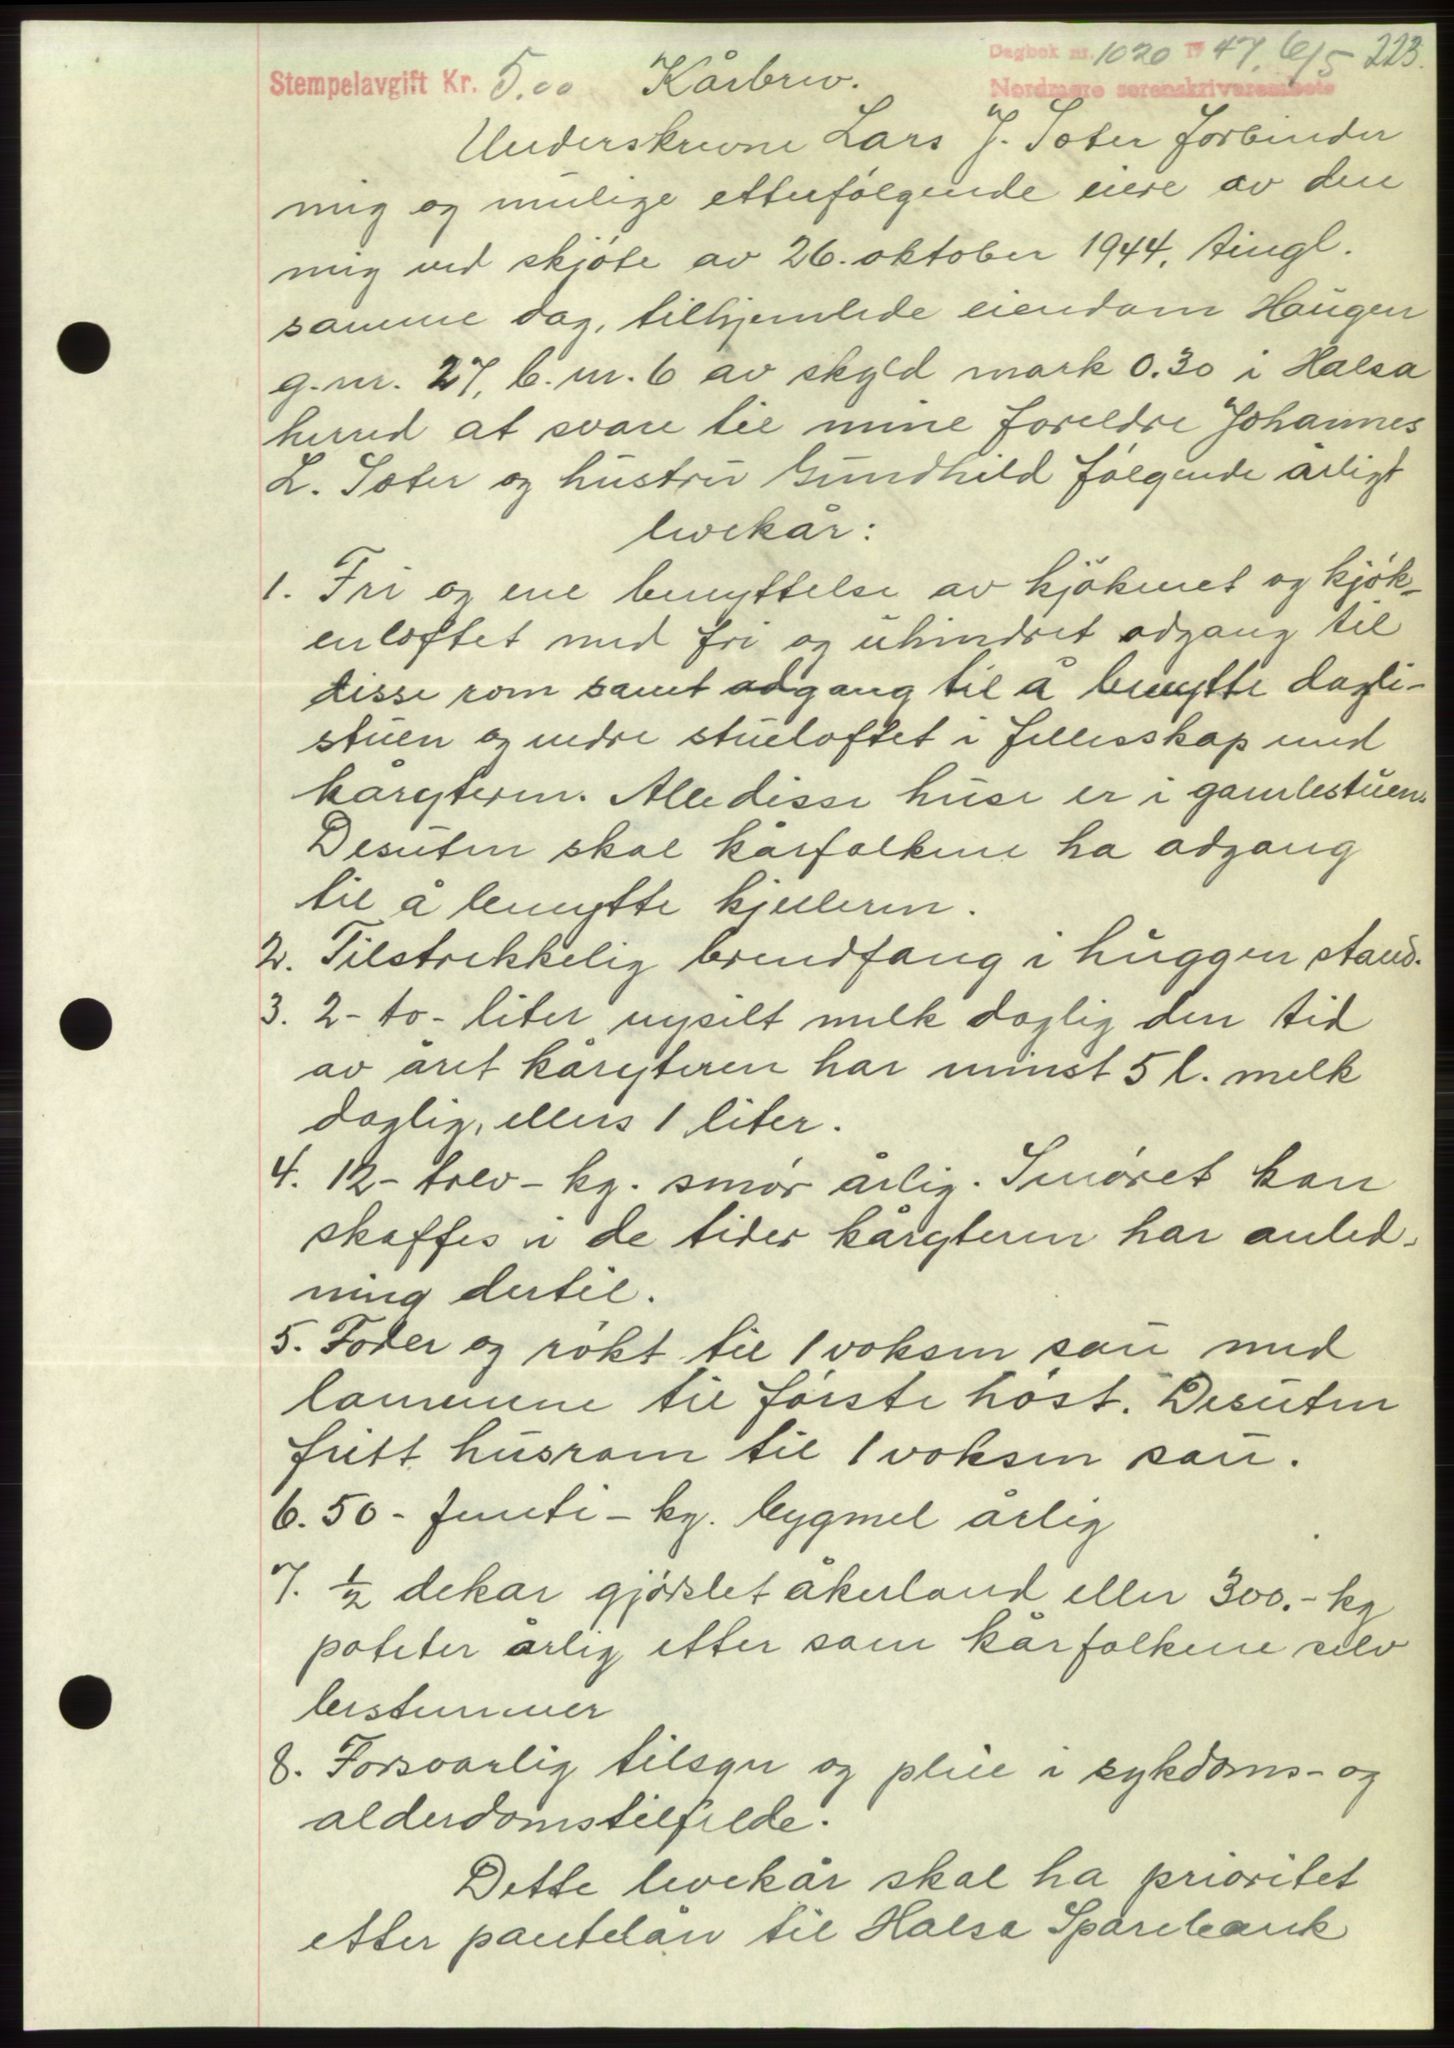 Dagbok nr. 1020 19 47, 6/5 223.
Nordmøre sorenskriverembete
Stempelavgift Kr. 5.00 Kårbrev.
Underskrevne Lars J. Sæter forbinder
mig og mulige etterfølgende eiere av den
mig ved skjøte av 26. oktober 1944, tingl.
samme dag, tilhjemlede eiendom Haugen
g.nr. 27, b.nr. 6 av skyld mark 0.30 i Halsa
herred at svare til mine foreldre Johannes
L. Sæter og hustru Gundhild følgende årligt
livekår:
1. Fri og ene benyttelse av kjøkenet og kjøk-
enloftet med fri og uhindret adgang til
disse rom samt adgang til å benytte dagli-
stuen og nedre stueloftet i fellesskap med
kåryteren. Alle disse huse er i gamlestuen.
Desuten skal kårfolkene ha adgang
til å benytte kjelleren.
2. Tilstrekkelig brendfang i huggen stand.
3. 2 - to - liter nysilt melk daglig den tid
av året kåryteren har minst 5 l. melk
daglig, ellers 1 liter.
4. 12 - tolv - kg. smør årlig. Smøret kan
skaffes i de tider kåryteren har anled-
ning dertil.
5. Foder og røkt til 1 voksen sau med
lammene til første høst. Desuten
fritt husrom til 1 voksen sau.
6. 50 - femti - kg. bygmel årlig
7. ½ dekar gjødslet åkerland eller 300.- kg
poteter årlig etter som kårfolkene selv
bestemmer
8. Forsvarlig tilsyn og pleie i sykdoms- og
alderdomstilfelde.
Dette livekår skal ha prioritet
etter pantelån til Halsa Sparebank